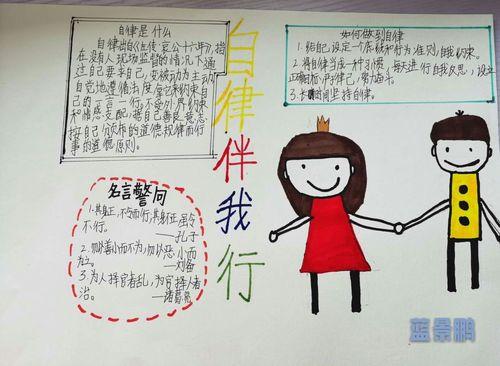 自律是什么
自律出自《左传·哀公十六年》,指
在没有人现场监督的情况下,通
过自己要求自己,变被动为主动,
自觉地遵循法度,拿它来约束自
己的一言一行。不受外界约束
和情感支配,据自己善良意志
按自己颁布的道德规律而行
事的道德原则。
如何做到自律
1.给自己设定一个底线和行为准则,自我约束。
2.将自律当成一种习惯,每天进行自我反思,设立
正确目标,严于律己,努力奋斗。
3.长时间坚持自律。
自律伴我行
名言警句
1.其身正,不令而行;其身不正,虽令
不行。
——孔子
2.勿以善小而不为,勿以恶小而
为之。
——刘备
3.为人择官者乱,为官择人者
治。
——诸葛亮
蓝景鹏